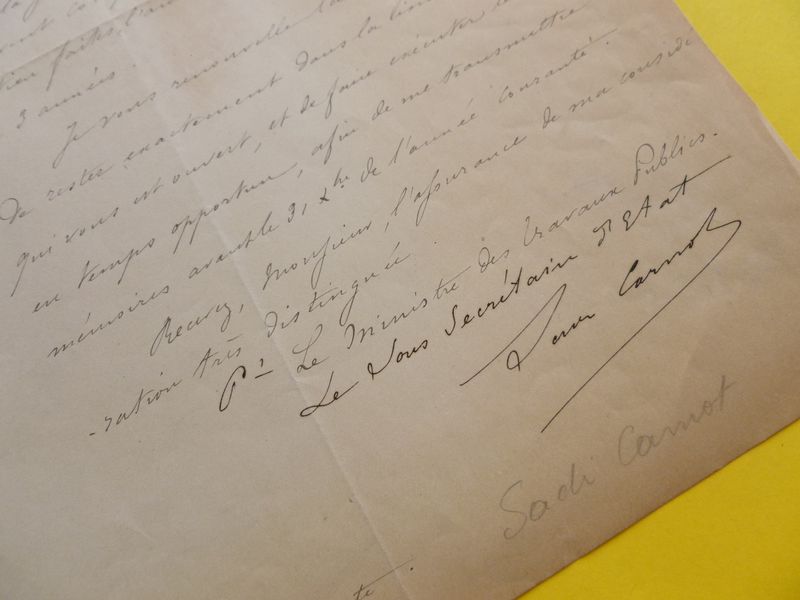 bien faits, l'un
3 années.
Je vous renouvelle la
de rester exactement dans la limite
qui vous est ouvert, et de faire exécuter les
en temps opportun, afin de me transmettre
mémoires avant le 31 Xbre de l'année courante.
Recevez, Monsieur, l'assurance de ma considé
-ration très distinguée.
Pr Le Ministre des Travaux Publics.
Le Sous Secrétaire d'Etat
Carnot
Sadi Carnot